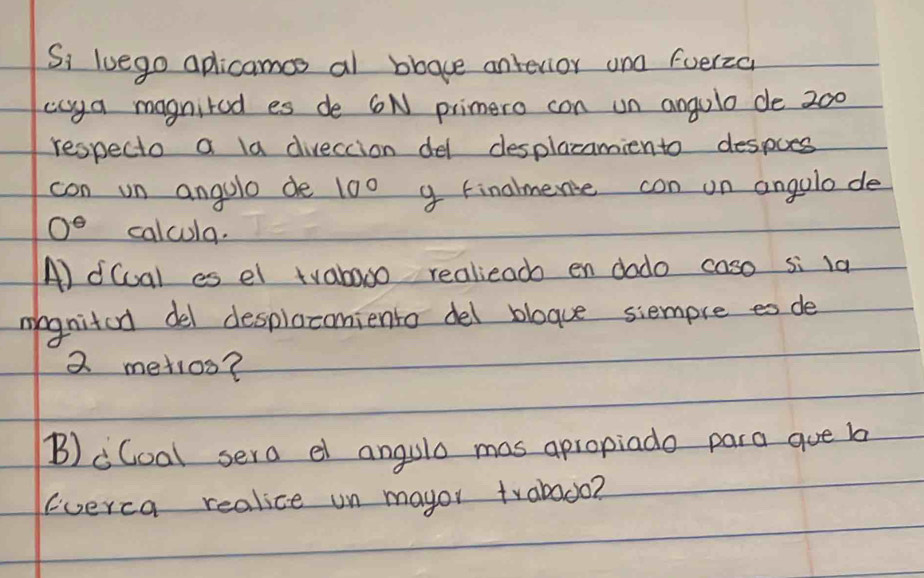 Si luego aplicamos al bloque anterior una fuerza
cuya magnitud es de 6N primero con un angulo de 200
respecto a la direccion del desplazamiento despues
con un angulo de 100 y finalmente con un angulo de
0° calcula.
A) ¿Cual es el trabajo realizado en dado caso si la
magnitud del desplazamiento del bloque siempre es de
2 metros?
B) ¿Cual sera el angulo mas apropiado para que la
fuerca realice un mayor trabajo?